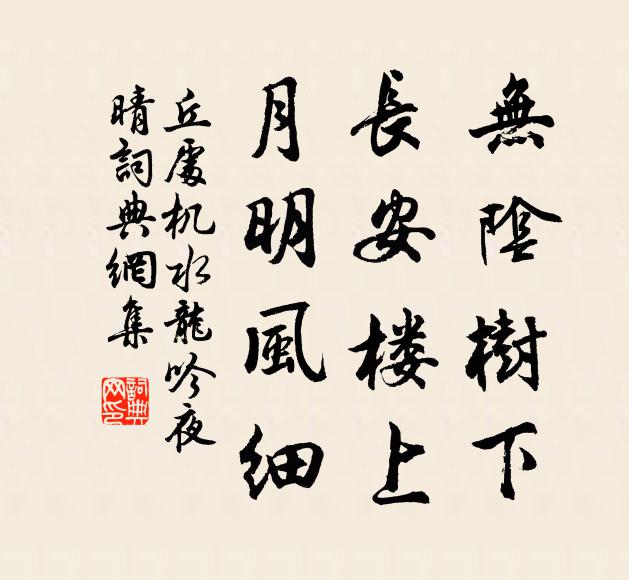 無陰樹下
長安楼上
月明風細
丘處机水龍吟夜
晴詞典網集
詞典網印